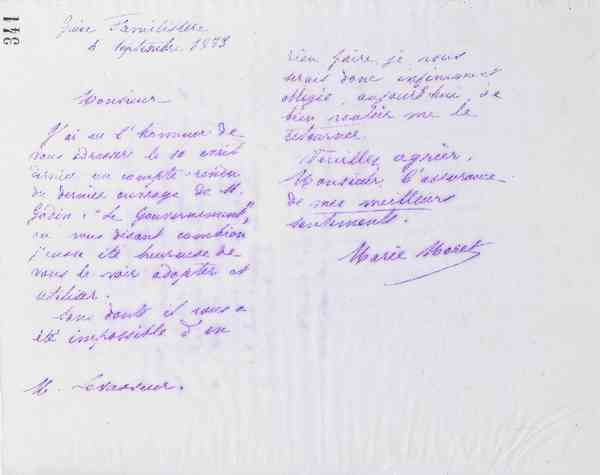 341
Guise Familistère
4 septembre 1893
Monsieur
J'ai eu l'honneur de
vous adresser le 10 avril
dernier un compte-rendu
du dernier ouvrage de M.
Godin : "Le Gouvernement",
en vous disant combien
j'eusse été heureuse de
vous le voir adopter et
utiliser.
Sans doute il vous a
été impossible d'en
M. Levasseur.
rien faire, je vous
serais donc infiniment
obligée, aujourd'hui, de
bien vouloir me le
retourner.
Veuillez agréer,
Monsieur, l'assurance
de mes meilleurs
sentiments.
Marie Moret